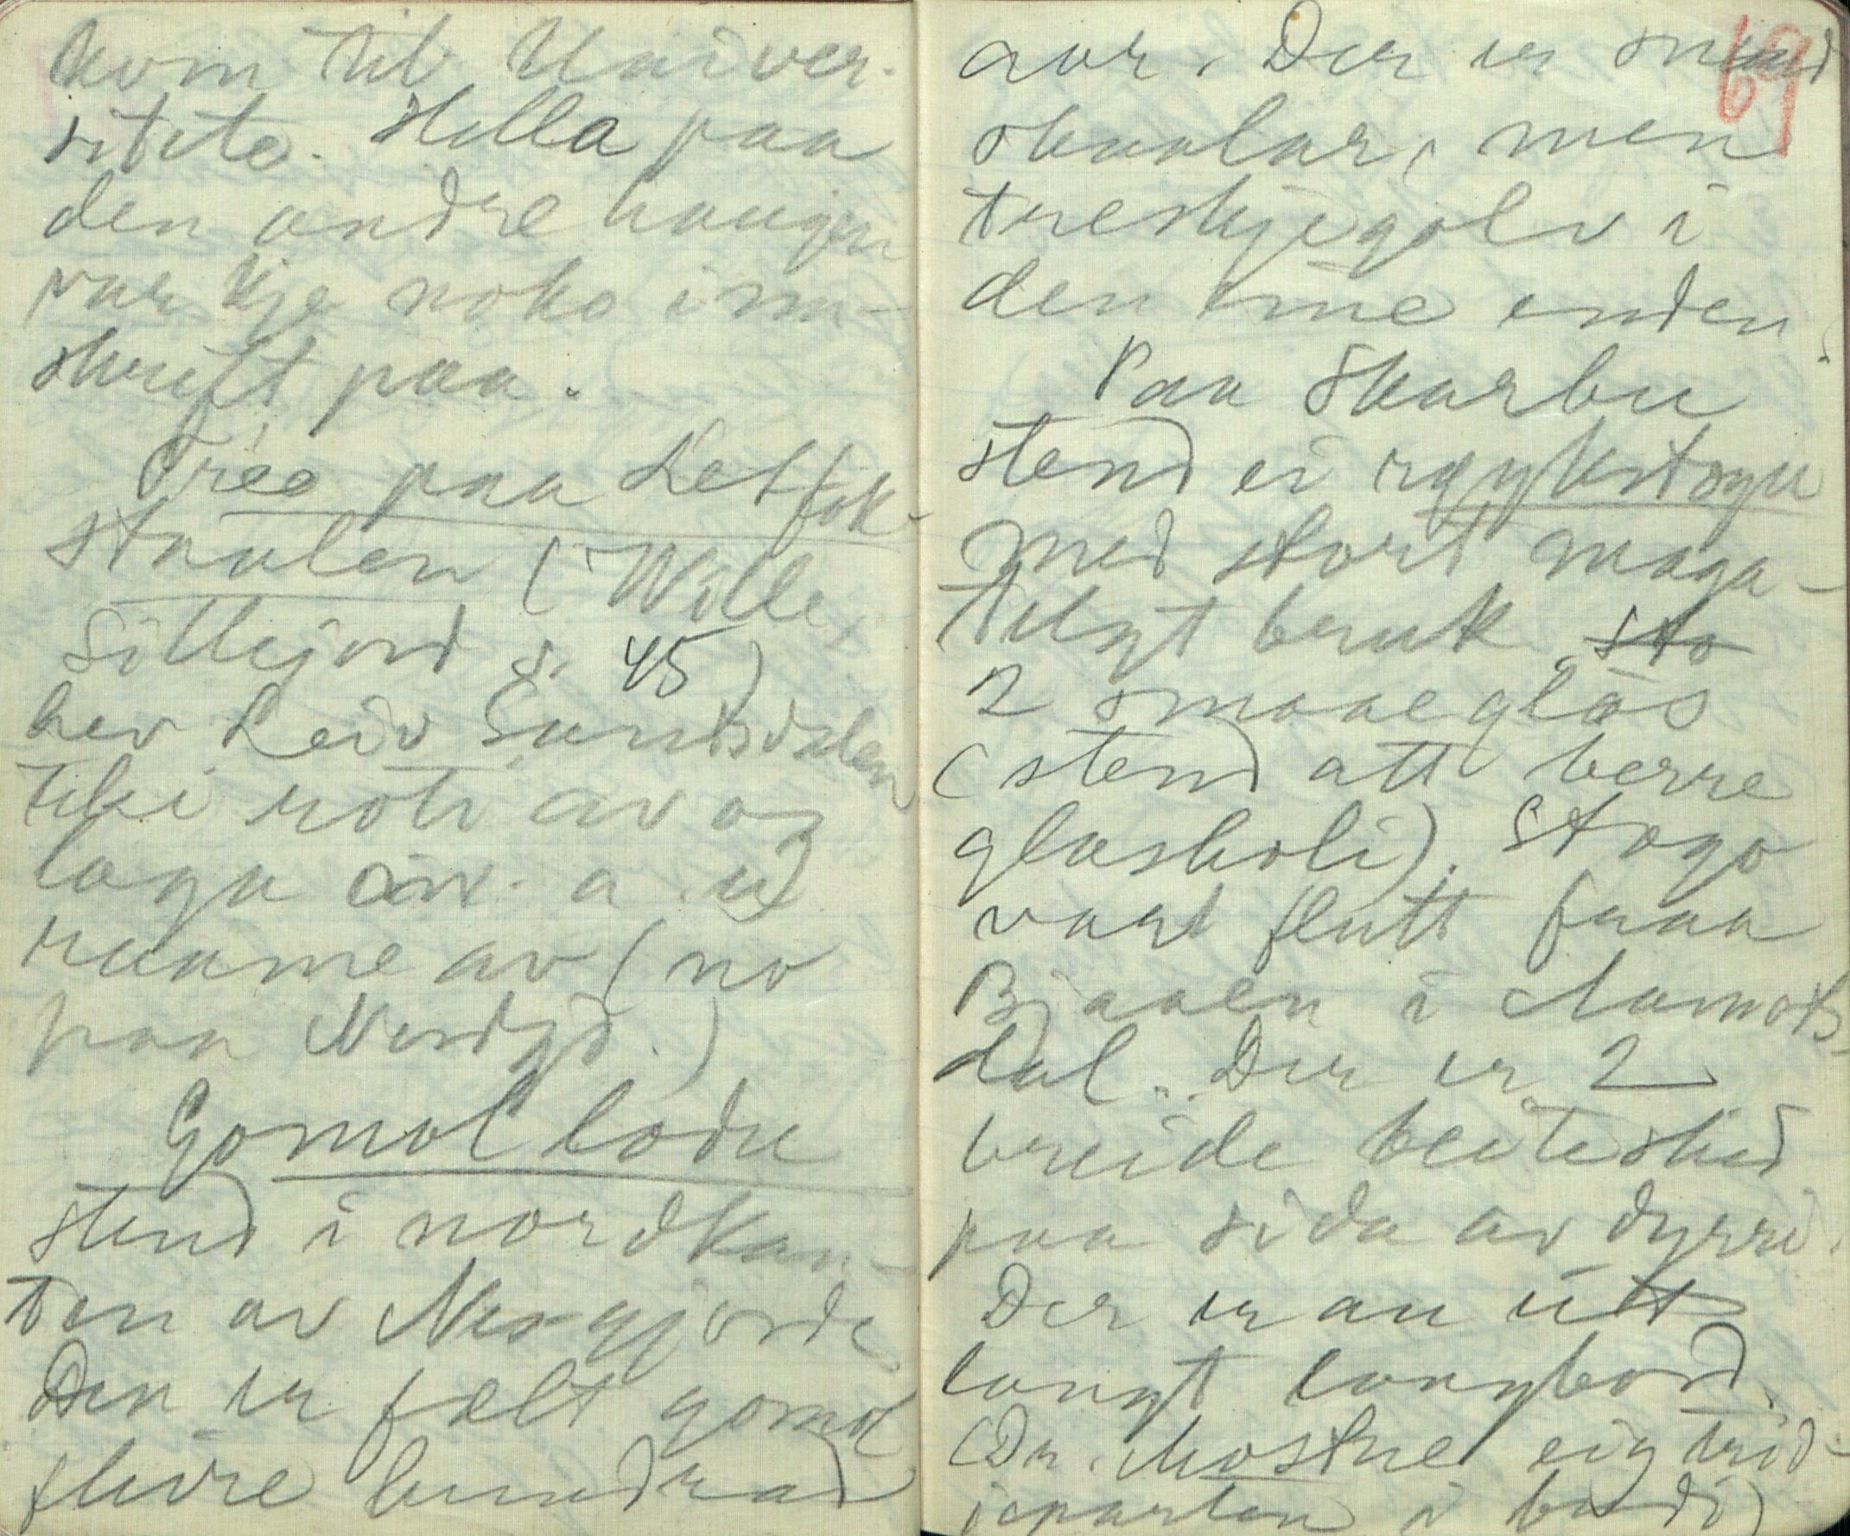 kom til Univer-
sitete. Hella paa
den andre haugen
var kje noko inn-
skrift paa.
Tree paa
staulen (Wille,
Sillejord s. 45)
hev Leiv Sundsdalen
tiki roti av og
laga
raame av (no
paa
Gomol lodu
stend i nordkan-
ten av Nesgjorde
Den er fælt gomol
fleire hundrad
69
aar. Der er
skaalar, men
treskjegolv i
den eine enden.
Paa Skarbu
stend ei røykstogu
med stort maga-
bruk sto
2 smaae glas
(stend att berre
glasholi). Stogo
vart flutt fraa
Bjaaen i Aamots-
dal. Der er 2
breide beiteskid
paa sida av dyrri.
Der er au
langt langbord.
(Dr. Mostue eig trid-
jeparten i